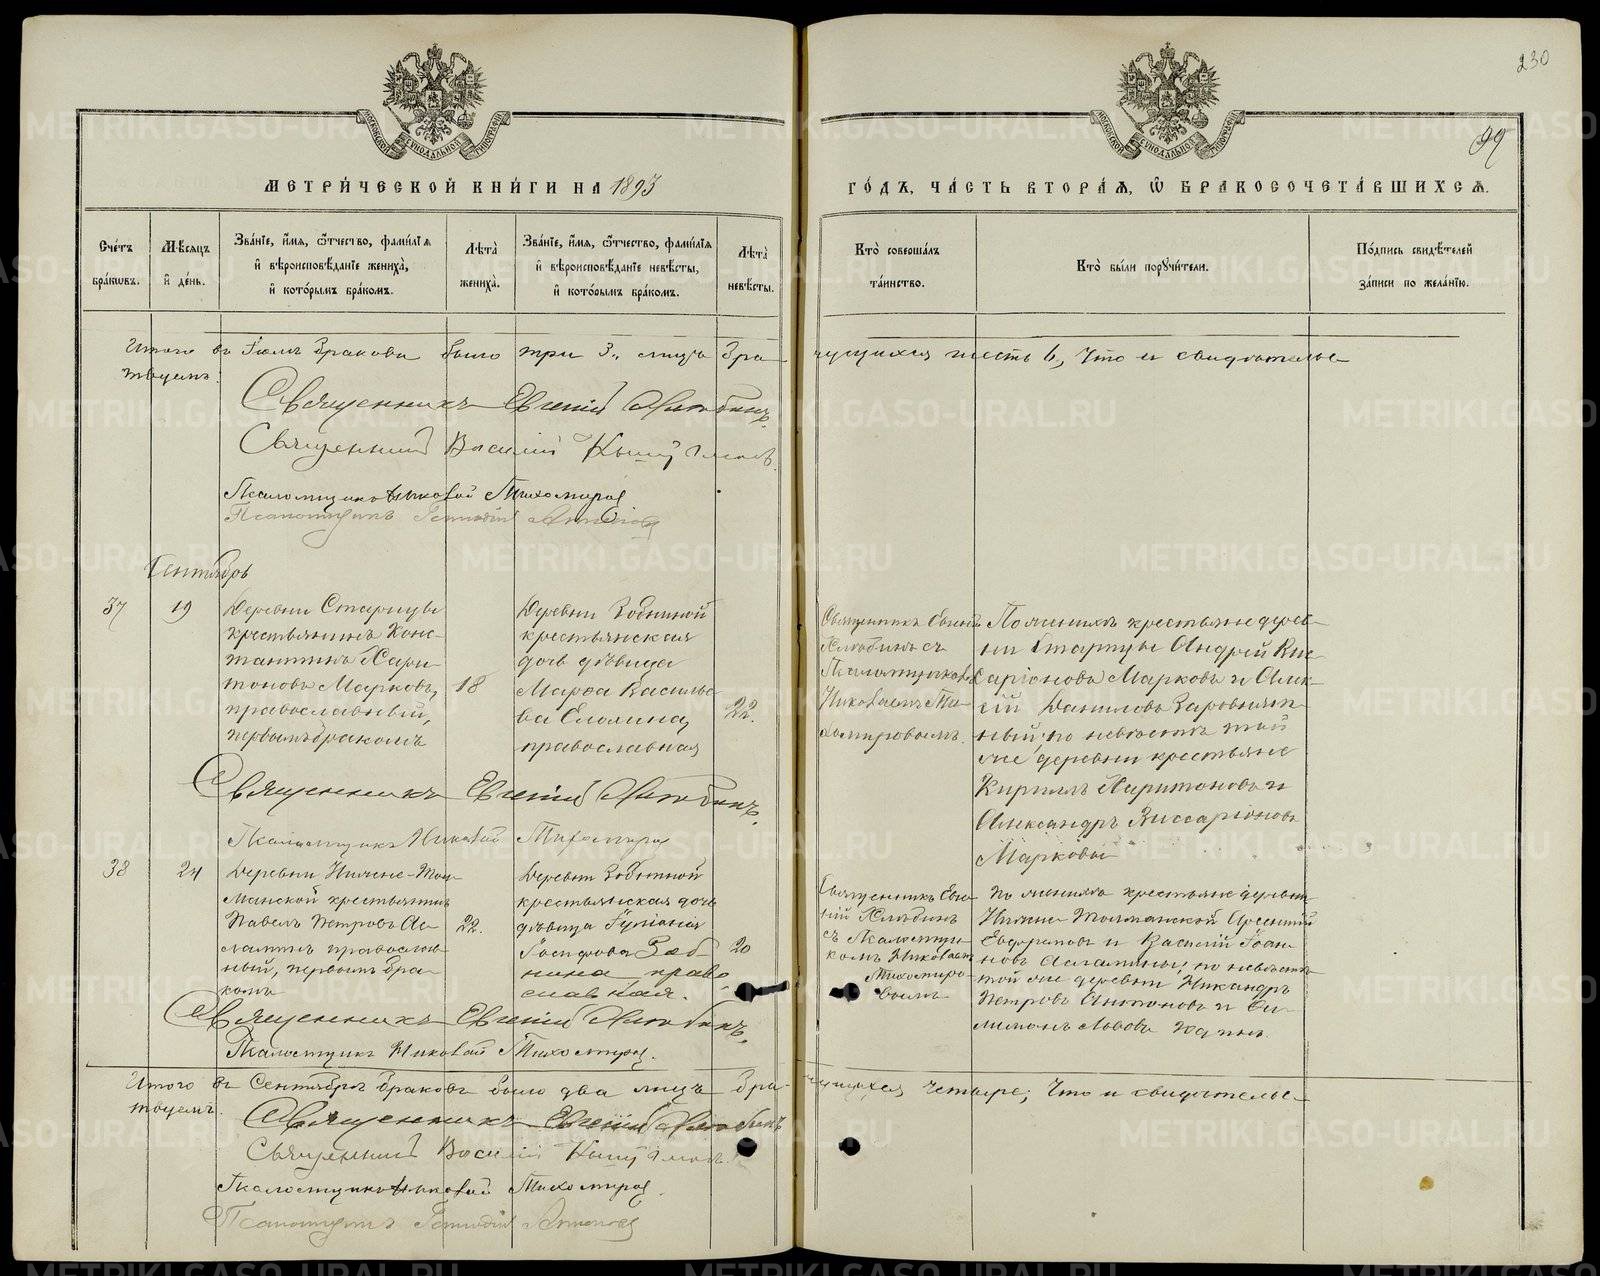 230
99
МЕТРИ́ЧЕСКОЙ КНИ́ГИ НА 1893
ГО́ДЪ, ЧА́СТЬ ВТОРА́Я, Ѡ БРАКОСОЧЕТА́ВШИХСЯ.
Сче́тъ бра́кѡвъ.
Мѣ́сяцъ и҆ де́нь.
Зва́нїе, и҆́мя, ѻ҆́тчество, фами́лїя и҆ вѣроисповѣ́данїе жениха̀, и҆ кото́рымъ бра́комъ.
Лѣта̀ жениха̀.
Зва́нїе, и҆́мя, ѻ҆́тчество, фами́лїя и҆ вѣроисповѣ́данїе невѣ́сты, и҆ кото́рымъ бра́комъ.
Лѣта̀ невѣ́сты.
Кто̀ соверша́лъ та́инство.
Кто̀ бы́ли пору́чители.
По́дпись свидѣ́телей за́писи по жела́нїю.
Итого въ Іюлѣ браковъ было три 3, лицъ бра-
чущихся шесть 6, Что и свидѣтельс-
твуемъ:
Священникъ Евгеній
Священникъ Василій
Псаломщикъ Николай Тихомировъ
Псаломщикъ Геннадій
Сентябрь
37
19
Деревни Старицы
крестьянинъ Конс-
тантинъ Хари-
тоновъ Марковъ,
православный,
первымъ бракомъ
18
Деревни Зобниной
крестьянская
дочь дѣвица
Марѳа Василье-
ва Еловина,
православная
22.
Священникъ Евгеній
съ
Псаломщикомъ
Николаемъ Ти-
хомировымъ.
По женихѣ крестьяне дерев-
ни Старицы Андрей Вис-
саріоновъ Марковъ и Алек-
сѣй Даниловъ
по невѣстѣ той
же деревни крестьяне
Кириллъ Харитоновъ и
Александръ Виссаріоновъ
Марковы
Священникъ Евгеній
Псаломщикъ Николай Тихомировъ
38
24
Деревни Нижне-Тол-
манской крестьянинъ
Павелъ Петровъ Ас-
ламинъ православ-
ный, первымъ бра-
комъ
22.
Деревни Зобниной
крестьянская дочь
дѣвица Іуліанія
Іосифова Зоб-
нина, право-
славная.
20
Священникъ Евге-
ній
съ Псаломщи-
комъ Николаемъ
Тихомиро-
вымъ
По женихѣ крестьяне деревни
Нижне-Толманской Арсеній
Евфремовъ и Василій Іоан-
новъ Асламины; по невѣстѣ
той же деревни Никандръ
Петровъ Антоновъ и Фи-
лимонъ Львовъ
Священникъ Евгеній
Псаломщикъ Николай Тихомировъ.
Итого въ Сентябрѣ браковъ было два лицъ бра-
чущихся четыре; Что и свидѣтельс-
твуемъ.
Священникъ Евгеній
Священникъ Василій
Псаломщикъ Николай Тихомировъ.
Псаломщикъ Геннадій
METRIKI.GASO-URAL.RU